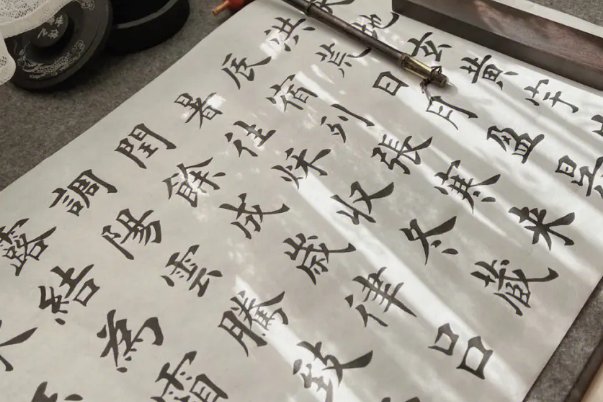 地玄黃宇
洪荒日月盈昃
辰宿列張寒来
暑往秋收冬藏
閏餘成歲律呂
調陽雲騰致
露結為霜